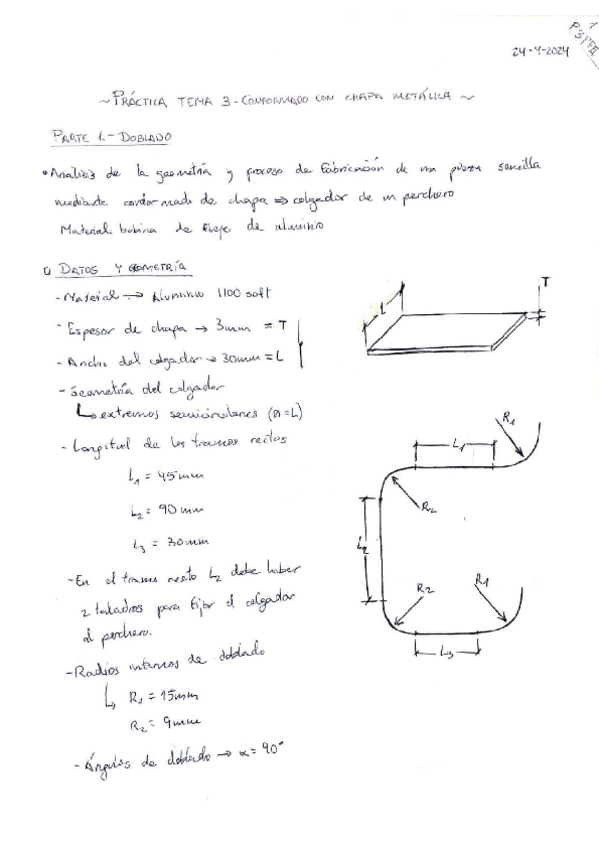 1
P3 PFII
24-4-2024
~ PRÁCTICA TEMA 3 - CONFORMADO CON CHAPA METÁLICA ~
PARTE 1.- DOBLADO
• Análisis de la geometría y proceso de fabricación de una pieza sencilla
mediante conformado de chapa ⇒ colgador de un perchero
Material bobina de fleje de aluminio
DATOS Y GEOMETRÍA
- Material → Aluminio 1100 soft
- Espesor de chapa → 3mm = T
- Ancho del colgador → 30mm = L
- Geometría del colgador
↳ extremos semicirculares (Ø = L)
- Longitud de los tramos rectos
L₁ = 45mm
L₂ = 90mm
L₃ = 30mm
- En el tramo recto L₂ debe haber
2 taladros para fijar el colgador
al perchero.
- Radios internos de doblado
↳ R₁ = 15mm
R₂ = 9mm
- Ángulos de doblado → α = 90°
L
T
R₁
L₁
R₂
L₂
R₂
R₁
L₃